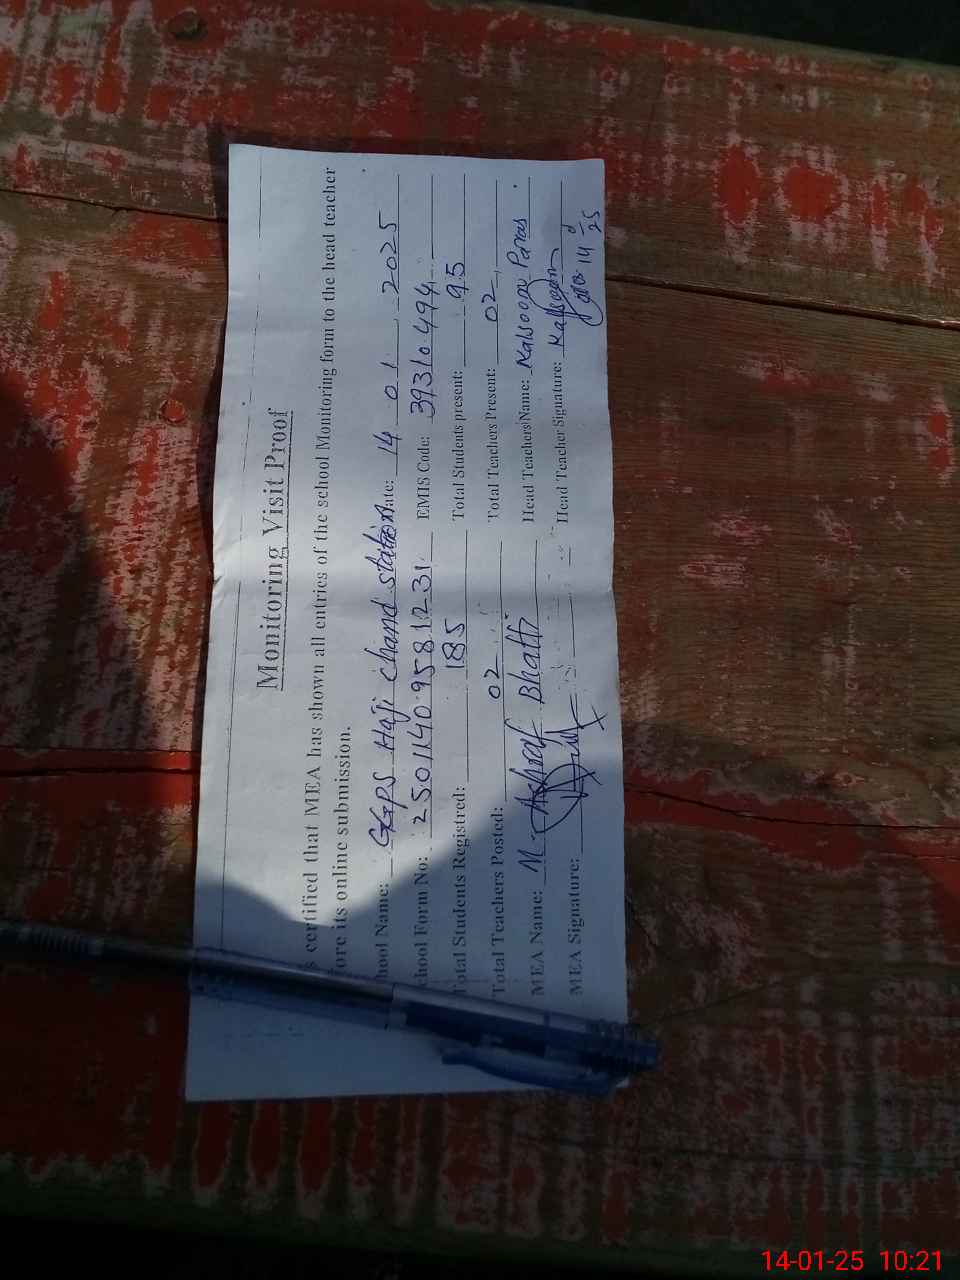 Monitoring Visit Proof
s certified that MEA has shown all entries of the school Monitoring form to the head teacher
ore its online submission.
hool Name: GGPS Haji Chand station ate: 14 01 2025
chool Form No: 25011409581231 EMIS Code: 39310494
Total Students Registred: 185 Total Students present: 95
Total Teachers Posted: 02 Total Teachers Present: 02
MEA Name: M. Ashraf Bhatti Head Teachers Name: Kalsoom Paras
MEA Signature: Head Teacher Signature: Kalsoom
14
25
14-01-25 10:21